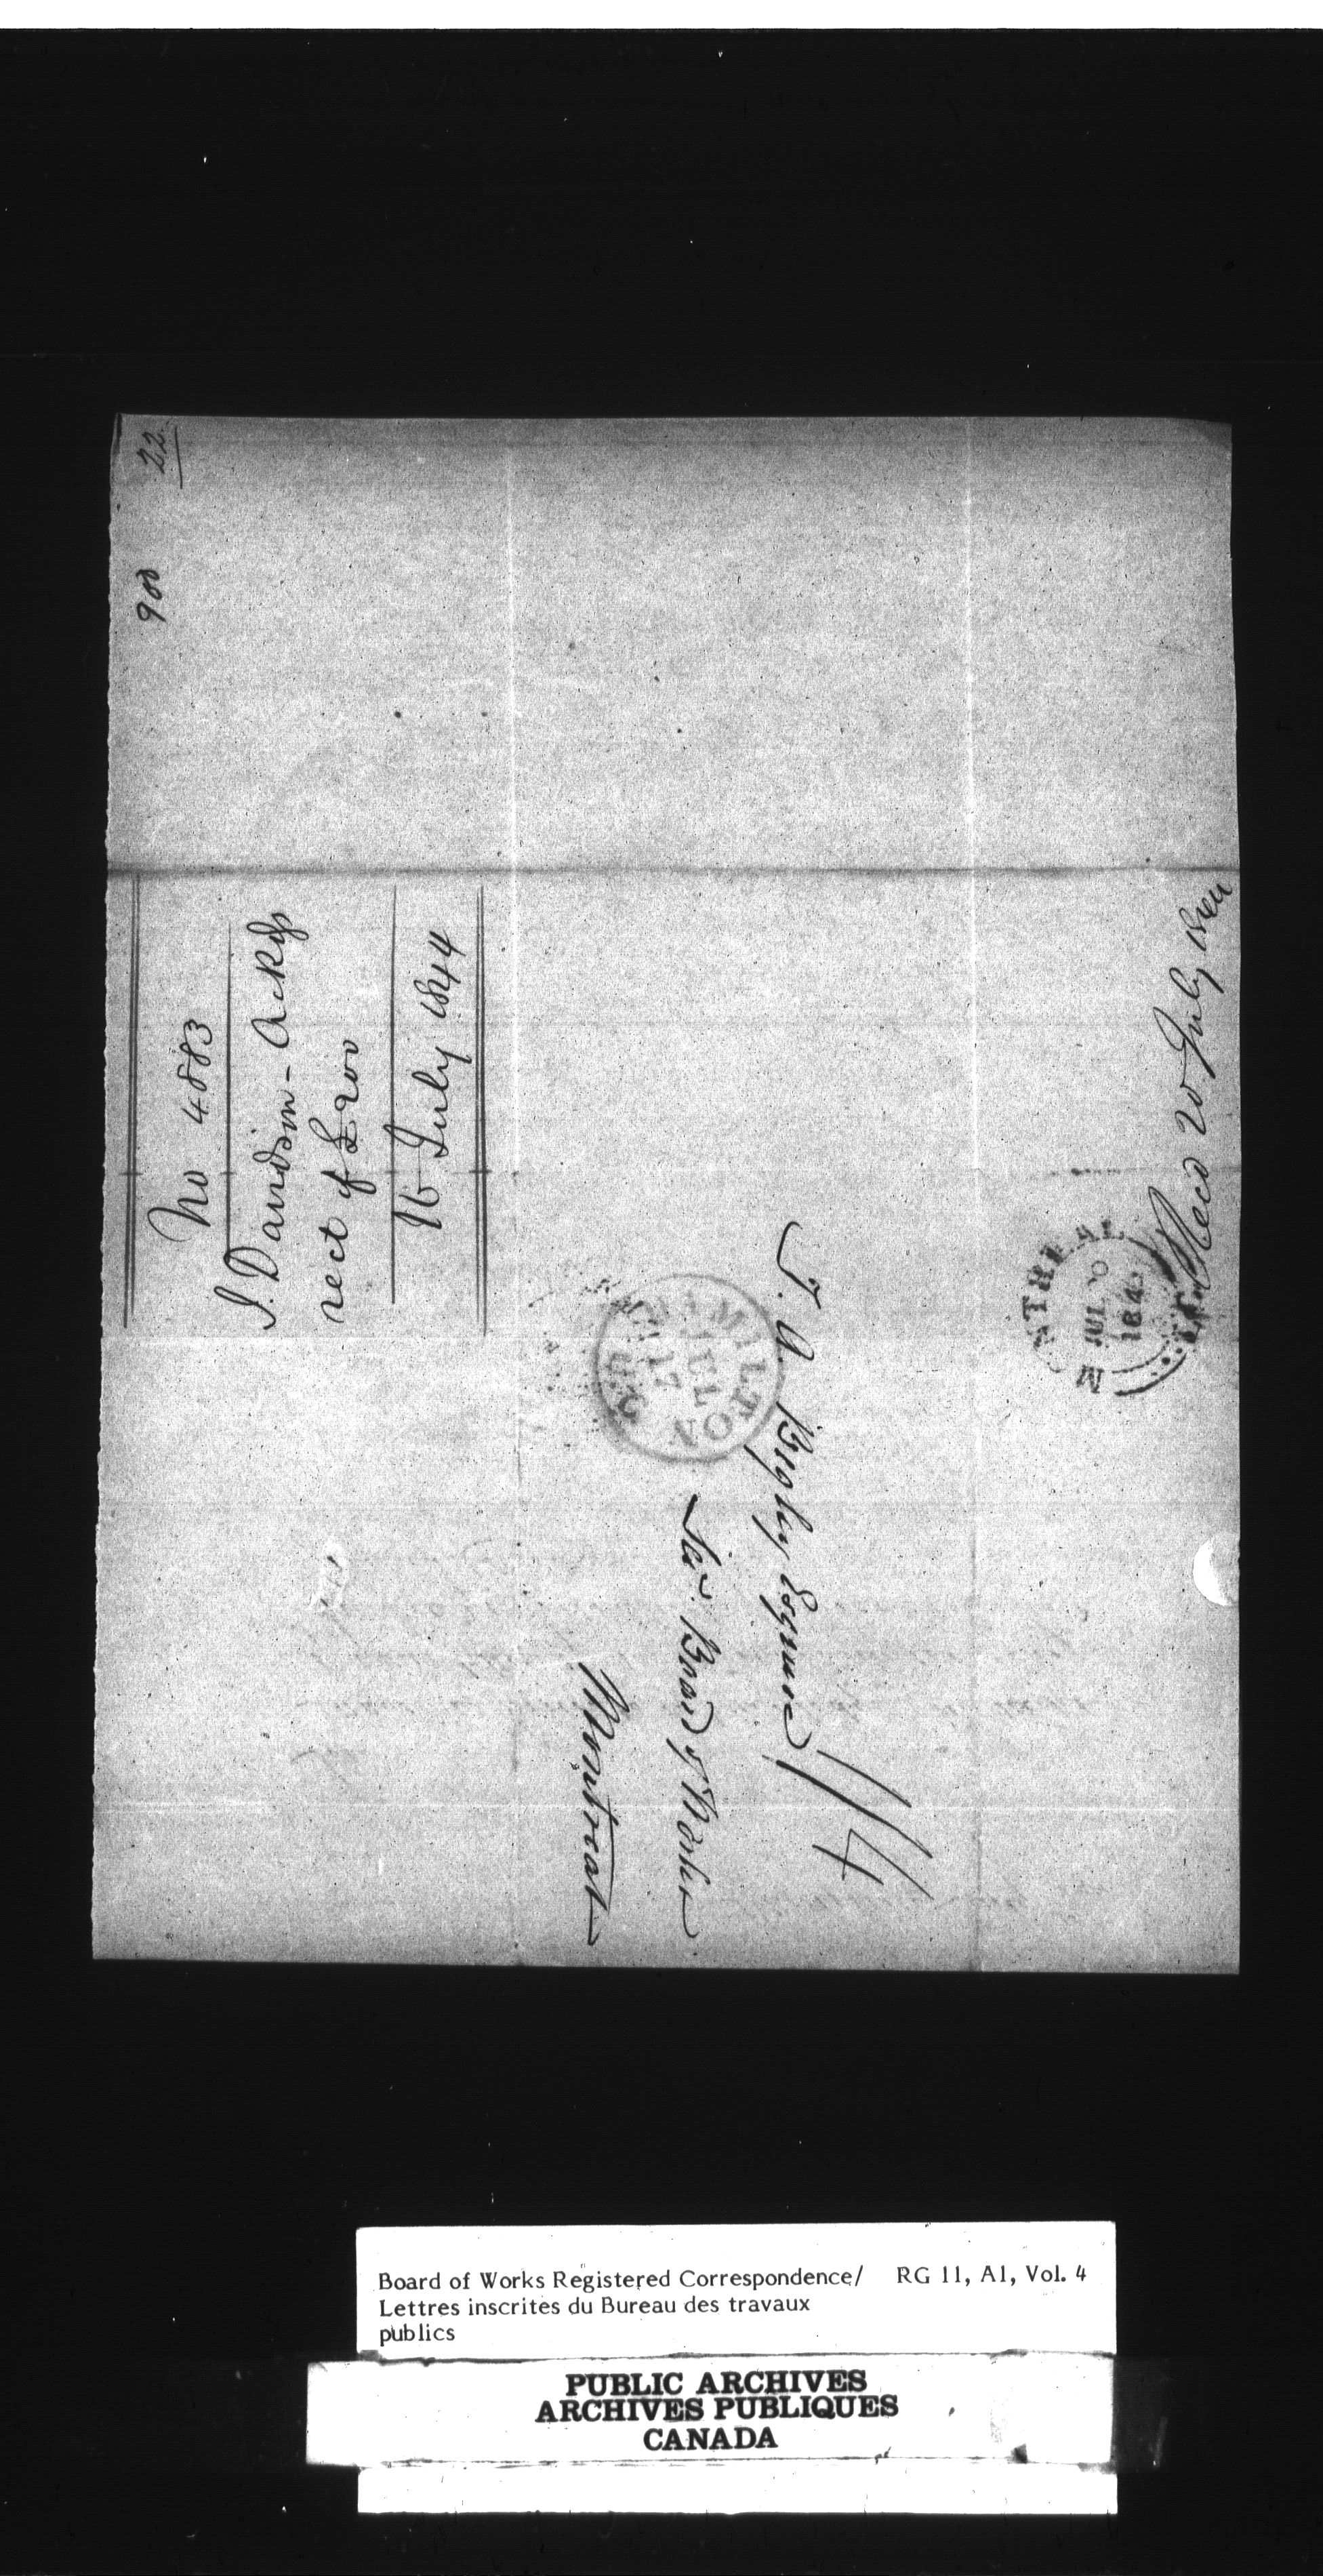 22
900
No 4883
J. Davidson - Ackgs
rect of £200
16 July 1844
T. A. Begly Esquire
Sec. Board of Works
Montreal
1/4
HAMILTON
JUL
17
U.C.
MONTREAL
JUL
184
Recd 20 July 1844
Board of Works Registered Correspondence/ RG 11, A1, Vol. 4
Lettres inscrites du Bureau des travaux
publics
PUBLIC ARCHIVES
ARCHIVES PUBLIQUES
CANADA